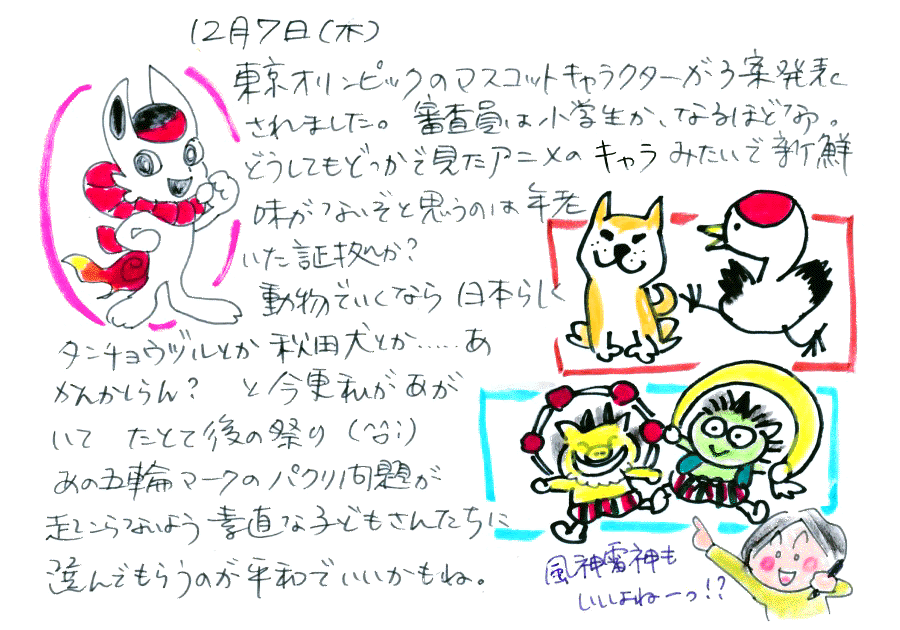 12月7日(木)
東京オリンピックのマスコットキャラクターが3案発表
されました。審査員は小学生か、なるほどなあ。
どうしてもどっかで見たアニメのキャラみたいで新鮮
味がないぞと思うのは年老
いた証拠か?
動物でいくなら日本らしく
タンチョウヅルとか秋田犬とか……あ
かんかしらん? と今更私があが
いて たとて後の祭り (^^;)
あの五輪マークのパクリ問題が
起こらないよう素直な子どもさんたちに
選んでもらうのが平和でいいかもね。
風神雷神も
いいよねーっ!?